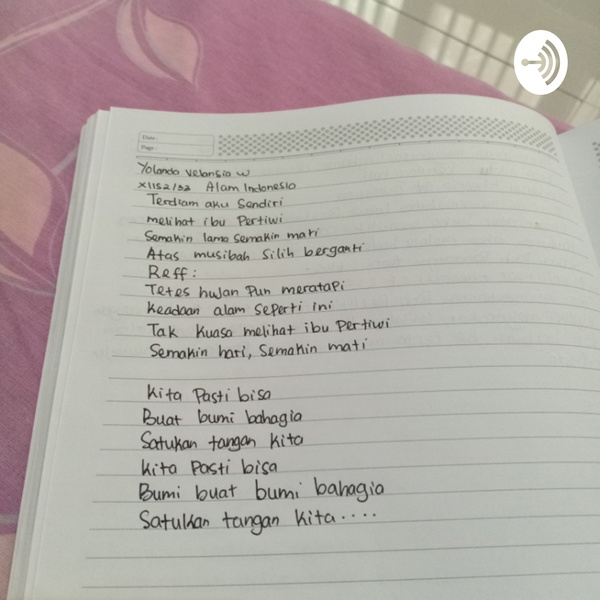 Date:
Page:
Yolanda Velansia W
XIIS2/33 Alam Indonesia
Terdiam aku Sendiri
melihat ibu Pertiwi
Semakin lama semakin mati
Atas musibah silih berganti
Reff:
Tetes hujan Pun meratapi
Keadaan alam seperti ini
Tak kuasa melihat ibu Pertiwi
Semakin hari, Semakin mati
Kita Pasti bisa
Buat bumi bahagia
Satukan tangan kita
Kita Pasti bisa
Bumi buat bumi bahagia
Satukan tangan kita....